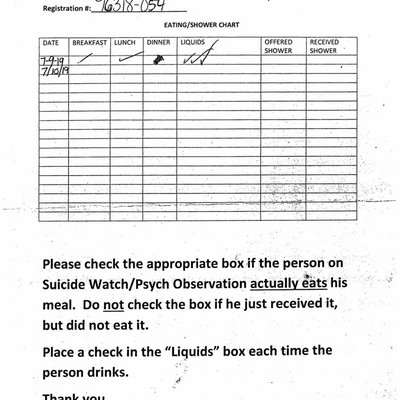 Registration #: 76318-054
EATING/SHOWER CHART
DATE BREAKFAST LUNCH DINNER LIQUIDS OFFERED SHOWER RECEIVED SHOWER
7-9-19
7/10/19
Please check the appropriate box if the person on
Suicide Watch/Psych Observation actually eats his
meal. Do not check the box if he just received it,
but did not eat it.
Place a check in the “Liquids” box each time the
person drinks.
Thank you